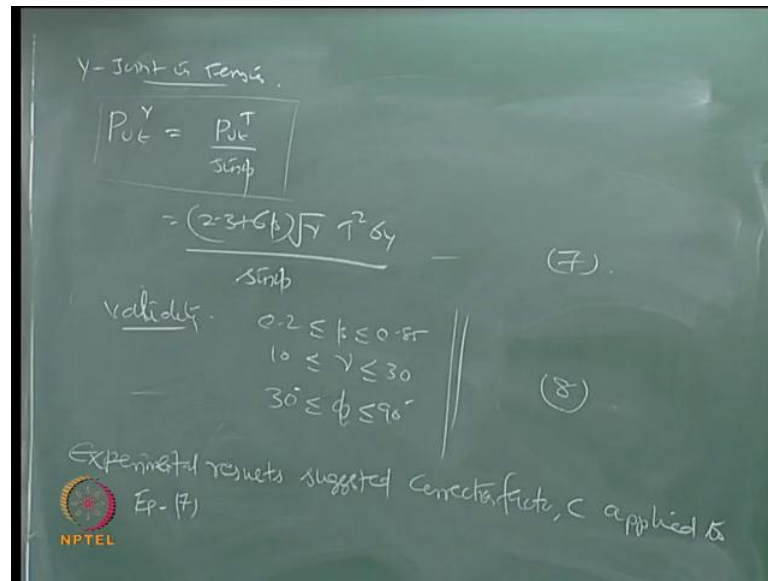 Y-Joint in Tension.
Put^Y = Put^T / sinϕ
= (2.3+6β)√γ T² σy / sinϕ — (7).
validity.
0.2 ≤ β ≤ 0.85
10 ≤ γ ≤ 30
30° ≤ ϕ ≤ 90° (8)
Experimental results suggested correction factor, C applied to
Eq-(7)
NPTEL